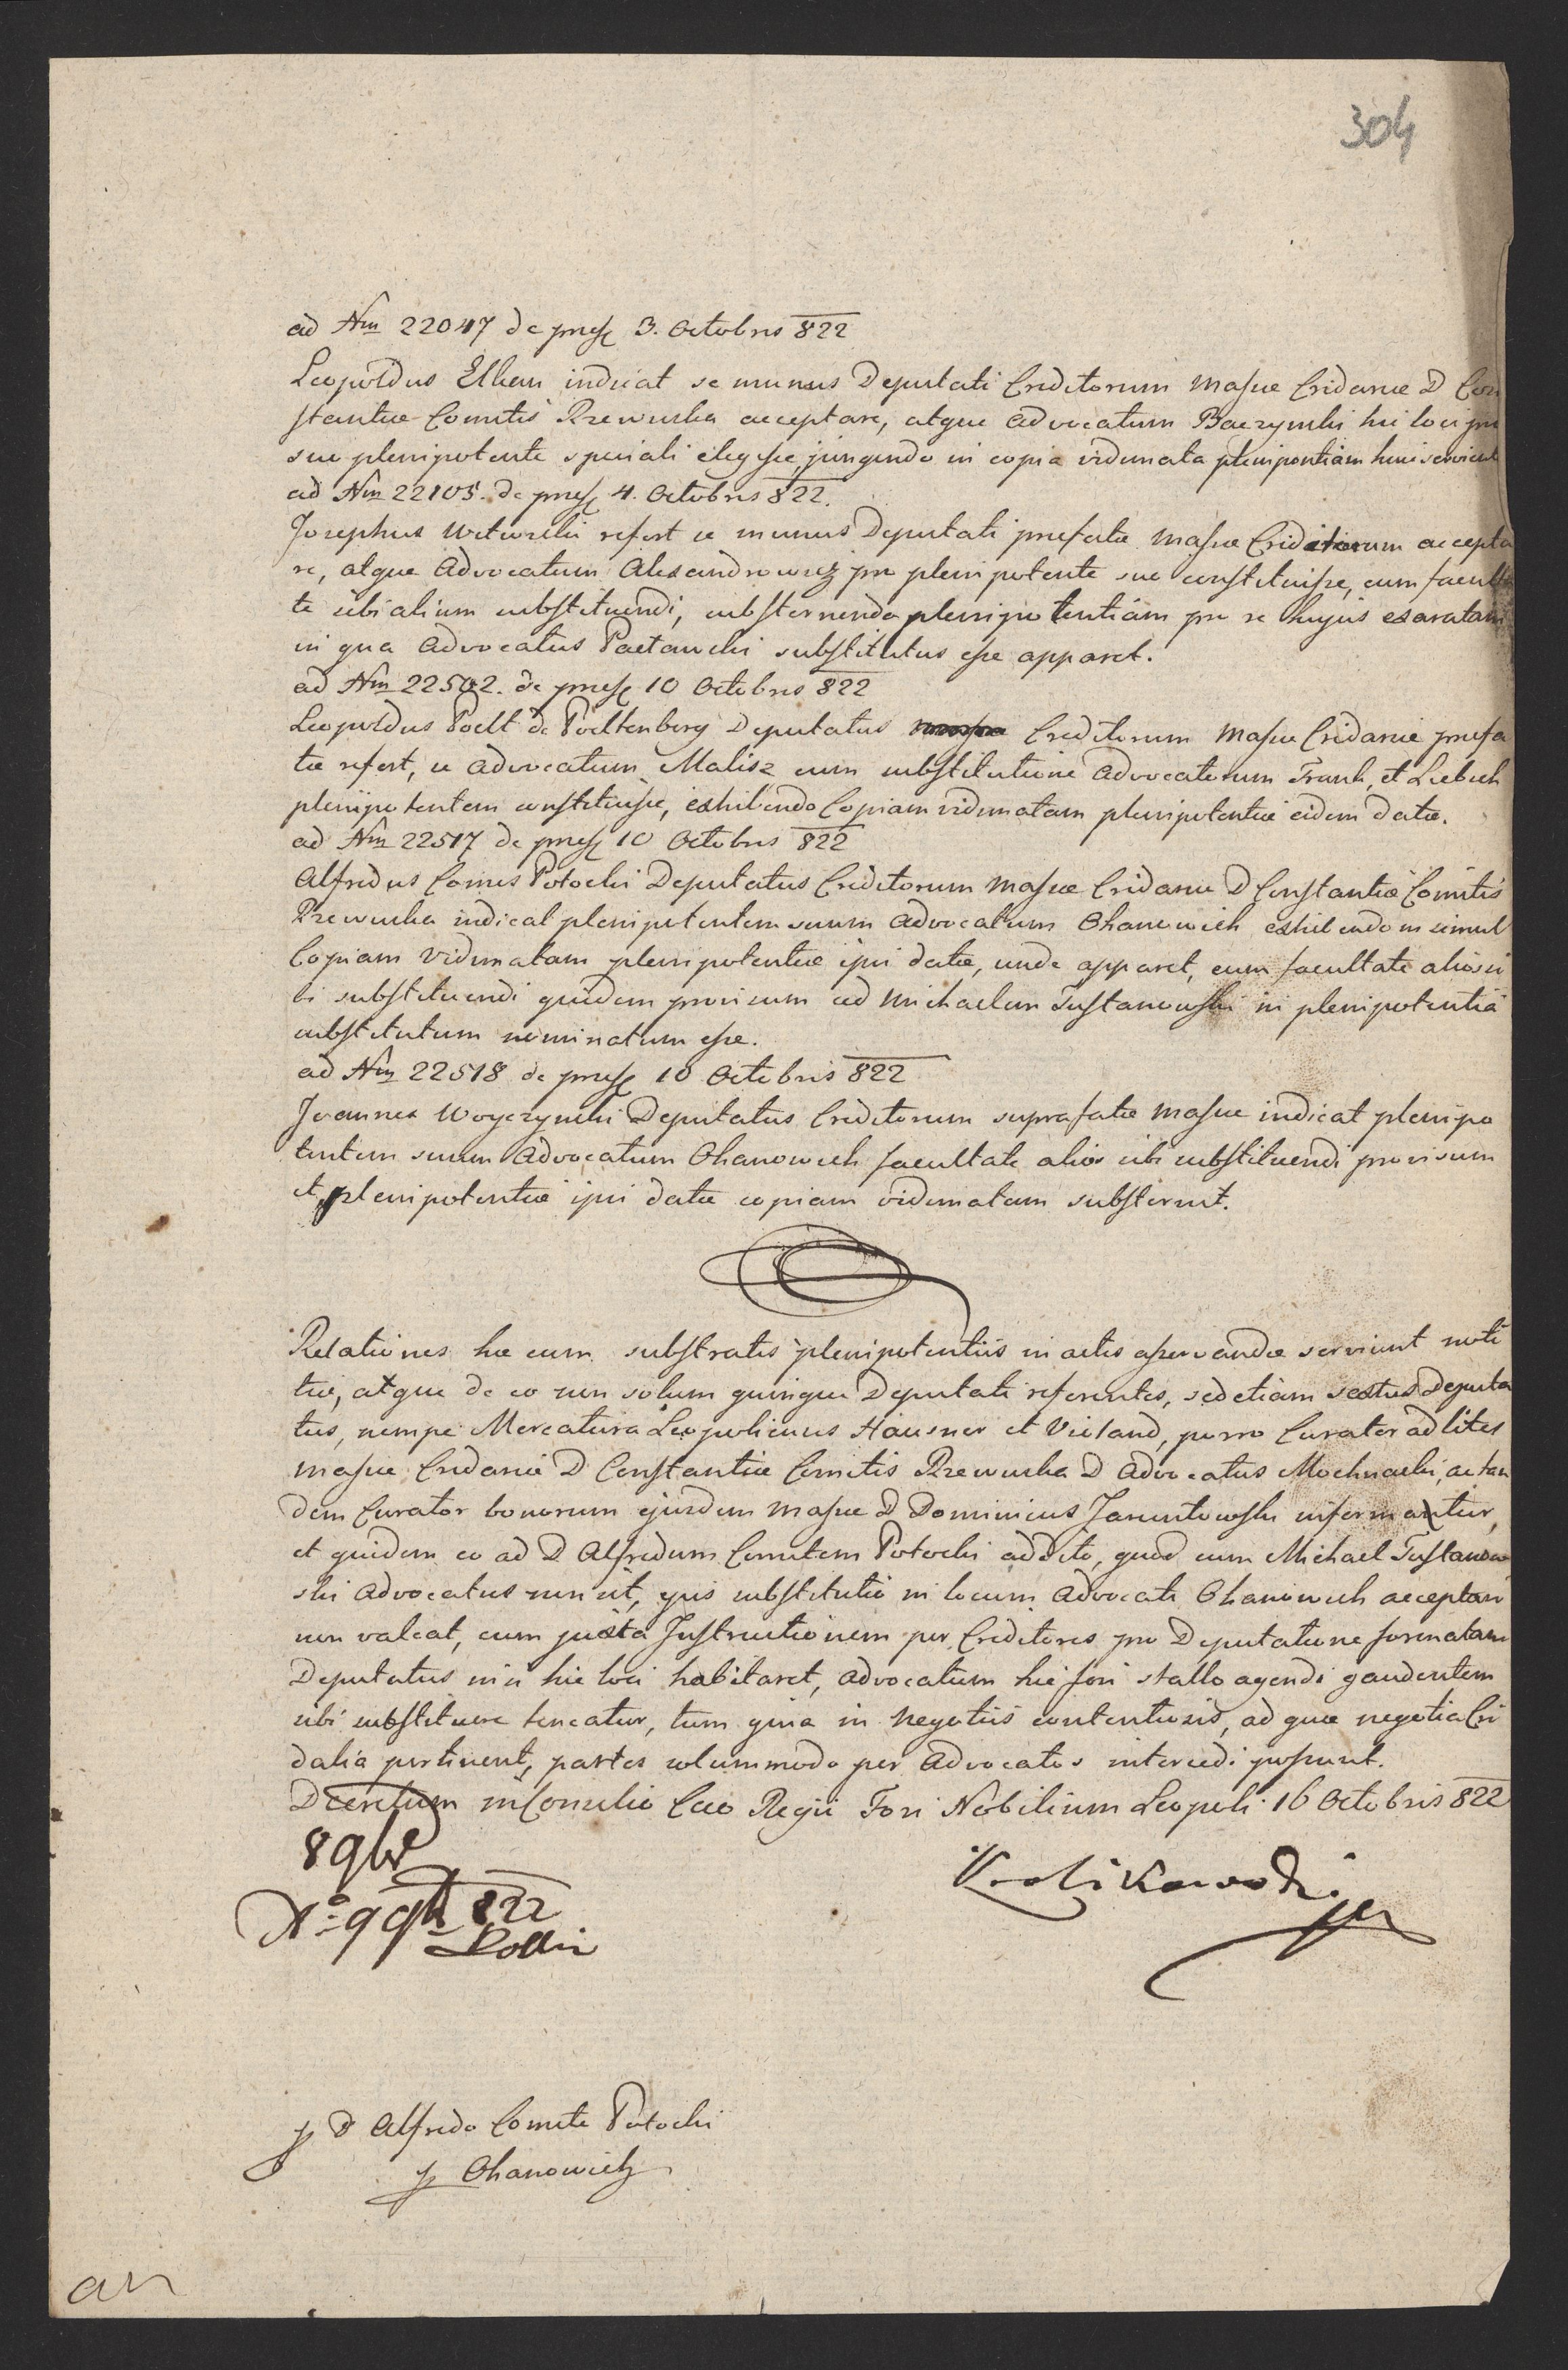 304
ad Nm 22047 de praes 3. Octobris 822
Leopoldus Elkan indicat se munus Deputati Creditorum Massae Cridariae D Con
stantiae Comitis Rzewuska acceptare, atque Advocatum Baczynski hic loci pro
suo plenipotente speciali elegisse, jungendo in copia vidimata plenipontiam huic
ad Nm 22105. de praes 4. Octobris 822.
Josephus refert se munus Deputati praefatae Massae Creditorum accepta
re, atque Advocatum Alexandrowicz pro plenipotente suo constituisse, cum faculta
te sibi alium substituendi, substernendo plenipotentiam pro re hujus exaratam
in qua Advocatus substitutus esse apparet.
ad Nm 22502. de praes 10 Octobris 822
Leopoldus Poelt de Poeltenberg Deputatus Creditorum Massae Cridariae praefa
tae refert, se Advocatum Malisz cum substitutione Advocatorum Frank, et Liebich
plenipotentem constituisse, exhibendo Copiam vidimatam plenipotentiae eidem datae.
ad Nm 22517 de praes 10 Octobris 822
Alfredus Comes Potocki Deputatus Creditorum Massae Cridariae D Constantiae Comitis
Rzewuska indicat plenipotentem suum Advocatum Ohanowich exhibendo in simul
Copiam Vidimatam plenipotentiae ipsi datae, unde apparet, eum facultate alios si
bi substituendi quidem provisum sed Michaelem Tustanowski in plenipotentia
substitutum nominatum esse.
ad Nm 22518 de praes 10 Octobris 822
Joannes Woyczynski Deputatus Creditorum suprafatae Massae indicat plenipo
tentem suum Advocatum Ohanowich facultate alios sibi substituendi provisum
et plenipotentiae ipsi datae copiam vidimatam substernit.
Relationes hae cum substratis plenipotentiis in actis asservandae serviunt noti
tiae, atque de eo non solum quinque Deputati referentes, sed etiam sextus Deputa
tus, nempe Mercatura Leopoliensis Hausner et Violand, porro Curator ad lites
Massae Cridariae D Constantiae Comitis Rzewuska D Advocatus Mochnacki, ac tan
dem Curator bonorum ejusdem Massae D Dominicus Jaruntowski informantur,
et quidem eo ad D Alfredum Comitem Potocki addito, quod cum Michael Tustanow
ski Advocatus non sit, ejus substitutio in locum Advocati Ohanowich acceptari
non valeat, cum juxta Instructionem per Creditores pro Deputatione formatam
Deputatus nisi hic loci habitaret, Advocatum hic fori stallo agendi gaudentem
sibi substituere teneatur, tum quia in negotiis contentiosis, ad quae negotia Cri
dalia pertinent, partes solummodo per Advocatos intercedi possunt.
Decretum in Consilio Caeo Regii Fori Nobilium Leopoli 16 Octobris 822
Krolikowski
822
D Alfredo Comite Potocki
Ohanowich